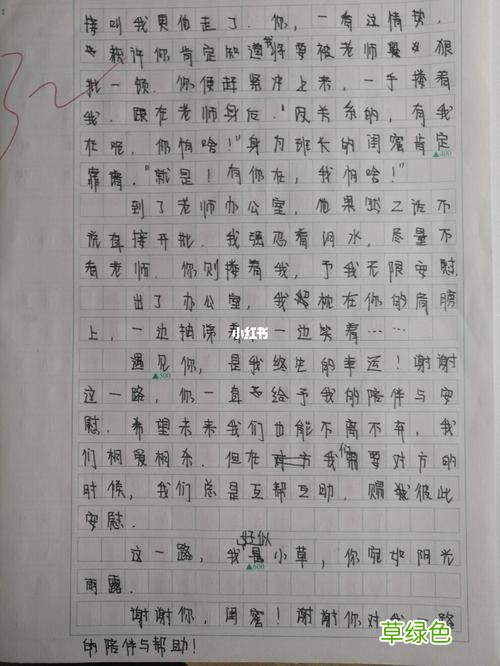 接叫我更他走了．你，一看这情势，
也许你肯定知道我将要被老师 狠
批一顿．你便赶紧冲上来，一手搂着
我．跟在老师身后．“没关系的，有我
在呢．你怕啥！”身为班长的闺密肯定
靠离．“就是！有你在，我怕啥！”
到了老师办公室，他果然二话不
说直接开批．我强忍着泪水，尽量不
看老师．你则搂着我，予我无限安慰
出了办公室，我枕在你的肩膀
上，一边抽涕着，一边笑着……
遇见你，是我终生的幸运！谢谢
这一路，你一直给予我的陪伴与安
慰．希望未来我们也能不离不弃．我
们相爱相杀．但在我们需要对方的
时候，我们总是互帮互助．赐我彼此
安慰．
这一路，我好似小草，你宛如阳光
雨露．
谢谢你，闺密！谢谢你对我一路
的陪伴与帮助！
▲400
▲500
▲600
小红书
草绿色